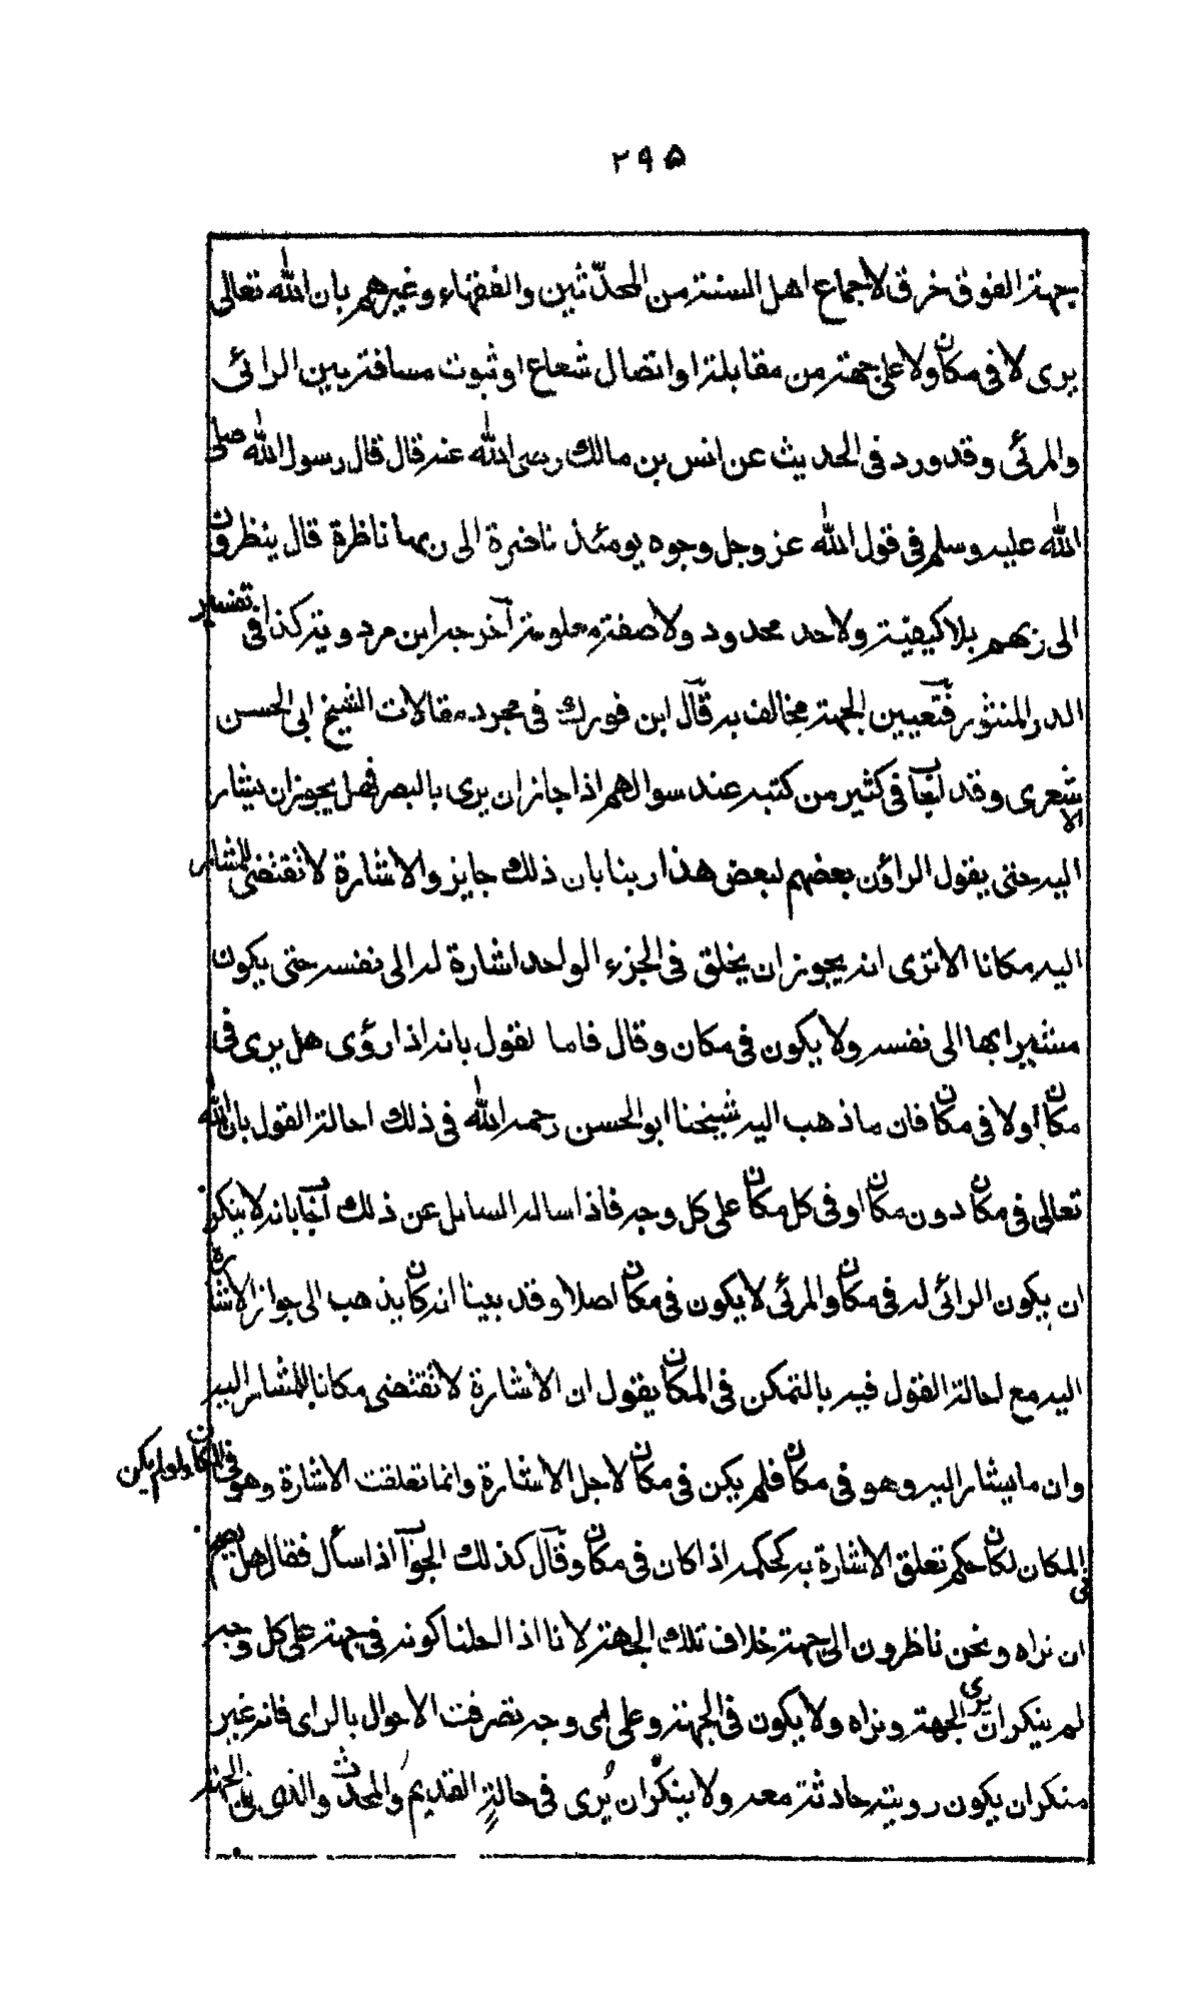 ۲۹۵
بجهة الفوق خرق لاجماع اهل السنة من المحدّثين والفقهاء وغيرهم بان الله تعالى
يرى لا فى مكان ولا على جهة من مقابلة او اتصال شعاع او ثبوت مسافة بين الرائى
والمرئى وقد ورد فى الحديث عن انس بن مالك رضى الله عنه قال قال رسول الله صلى
الله عليه وسلم فى قول الله عز وجل وجوه يومئذ ناضرة الى ربها ناظرة قال ينظرون
الى ربهم بلا كيفية ولا حد محدود ولا صفة معلومة آخرجه ابن مردويه كذا فى تفسير
الدر المنثور فتعيين الجهة مخالف به قال ابن فورك فى مجرد مقالات الشيخ ابى الحسن
الاشعرى وقد اجاب فى كثير من كتبه عند سوالهم اذا جاز ان يرى بالبصر فهل يجوز ان يشار
اليه حتى يقول الراؤن بعضهم لبعض هذا ربنا بان ذلك جايز والاشارة لا تقتضى للمشار
اليه مكانا الا ترى انه يجوز ان يخلق فى الجزء الواحد اشارة له الى نفسه حتى يكون
مشيرا بها الى نفسه ولا يكون فى مكان وقال فاما نقول بانه اذا رؤى هل يرى فى
مكان او لا فى مكان فان ما ذهب اليه شيخنا ابو الحسن رحمه الله فى ذلك احالة القول بان الله
تعالى فى مكان دون مكان او فى كل مكان على كل وجه فاذا ساله السايل عن ذلك اجاب بانه لا ينكر
ان يكون الرائى له فى مكان والمرئى لا يكون فى مكان اصلا وقد بينا انه كان يذهب الى جواز الاشارة
اليه مع احالة القول فيه بالتمكن فى المكان يقول ان الاشارة لا تقتضى مكانا للمشار اليه
وان ما يشار اليه وهو فى مكان فلم يكن فى مكان لاجل الاشارة وانما تعلقت الاشارة وهو فى المكان ولو لم يكن
فى المكان لكان حكم تعلق الاشارة به كحكمه اذا كان فى مكان وقال كذلك الجواب اذا سأل فقال هل يصح
ان نراه ونحن ناظرون الى جهة خلاف تلك الجهة لانا اذا احلنا كونه فى جهة على كل وجه
لم ينكر ان نرى الجهة ونراه ولا يكون فى الجهة وعلى اى وجه تصرفت الاحوال بالراى فانه غير
منكر ان يكون رويته حادثة معه ولا ينكر ان يُرى فى حالةٍ القديم والمحدث والذى فى الجهة